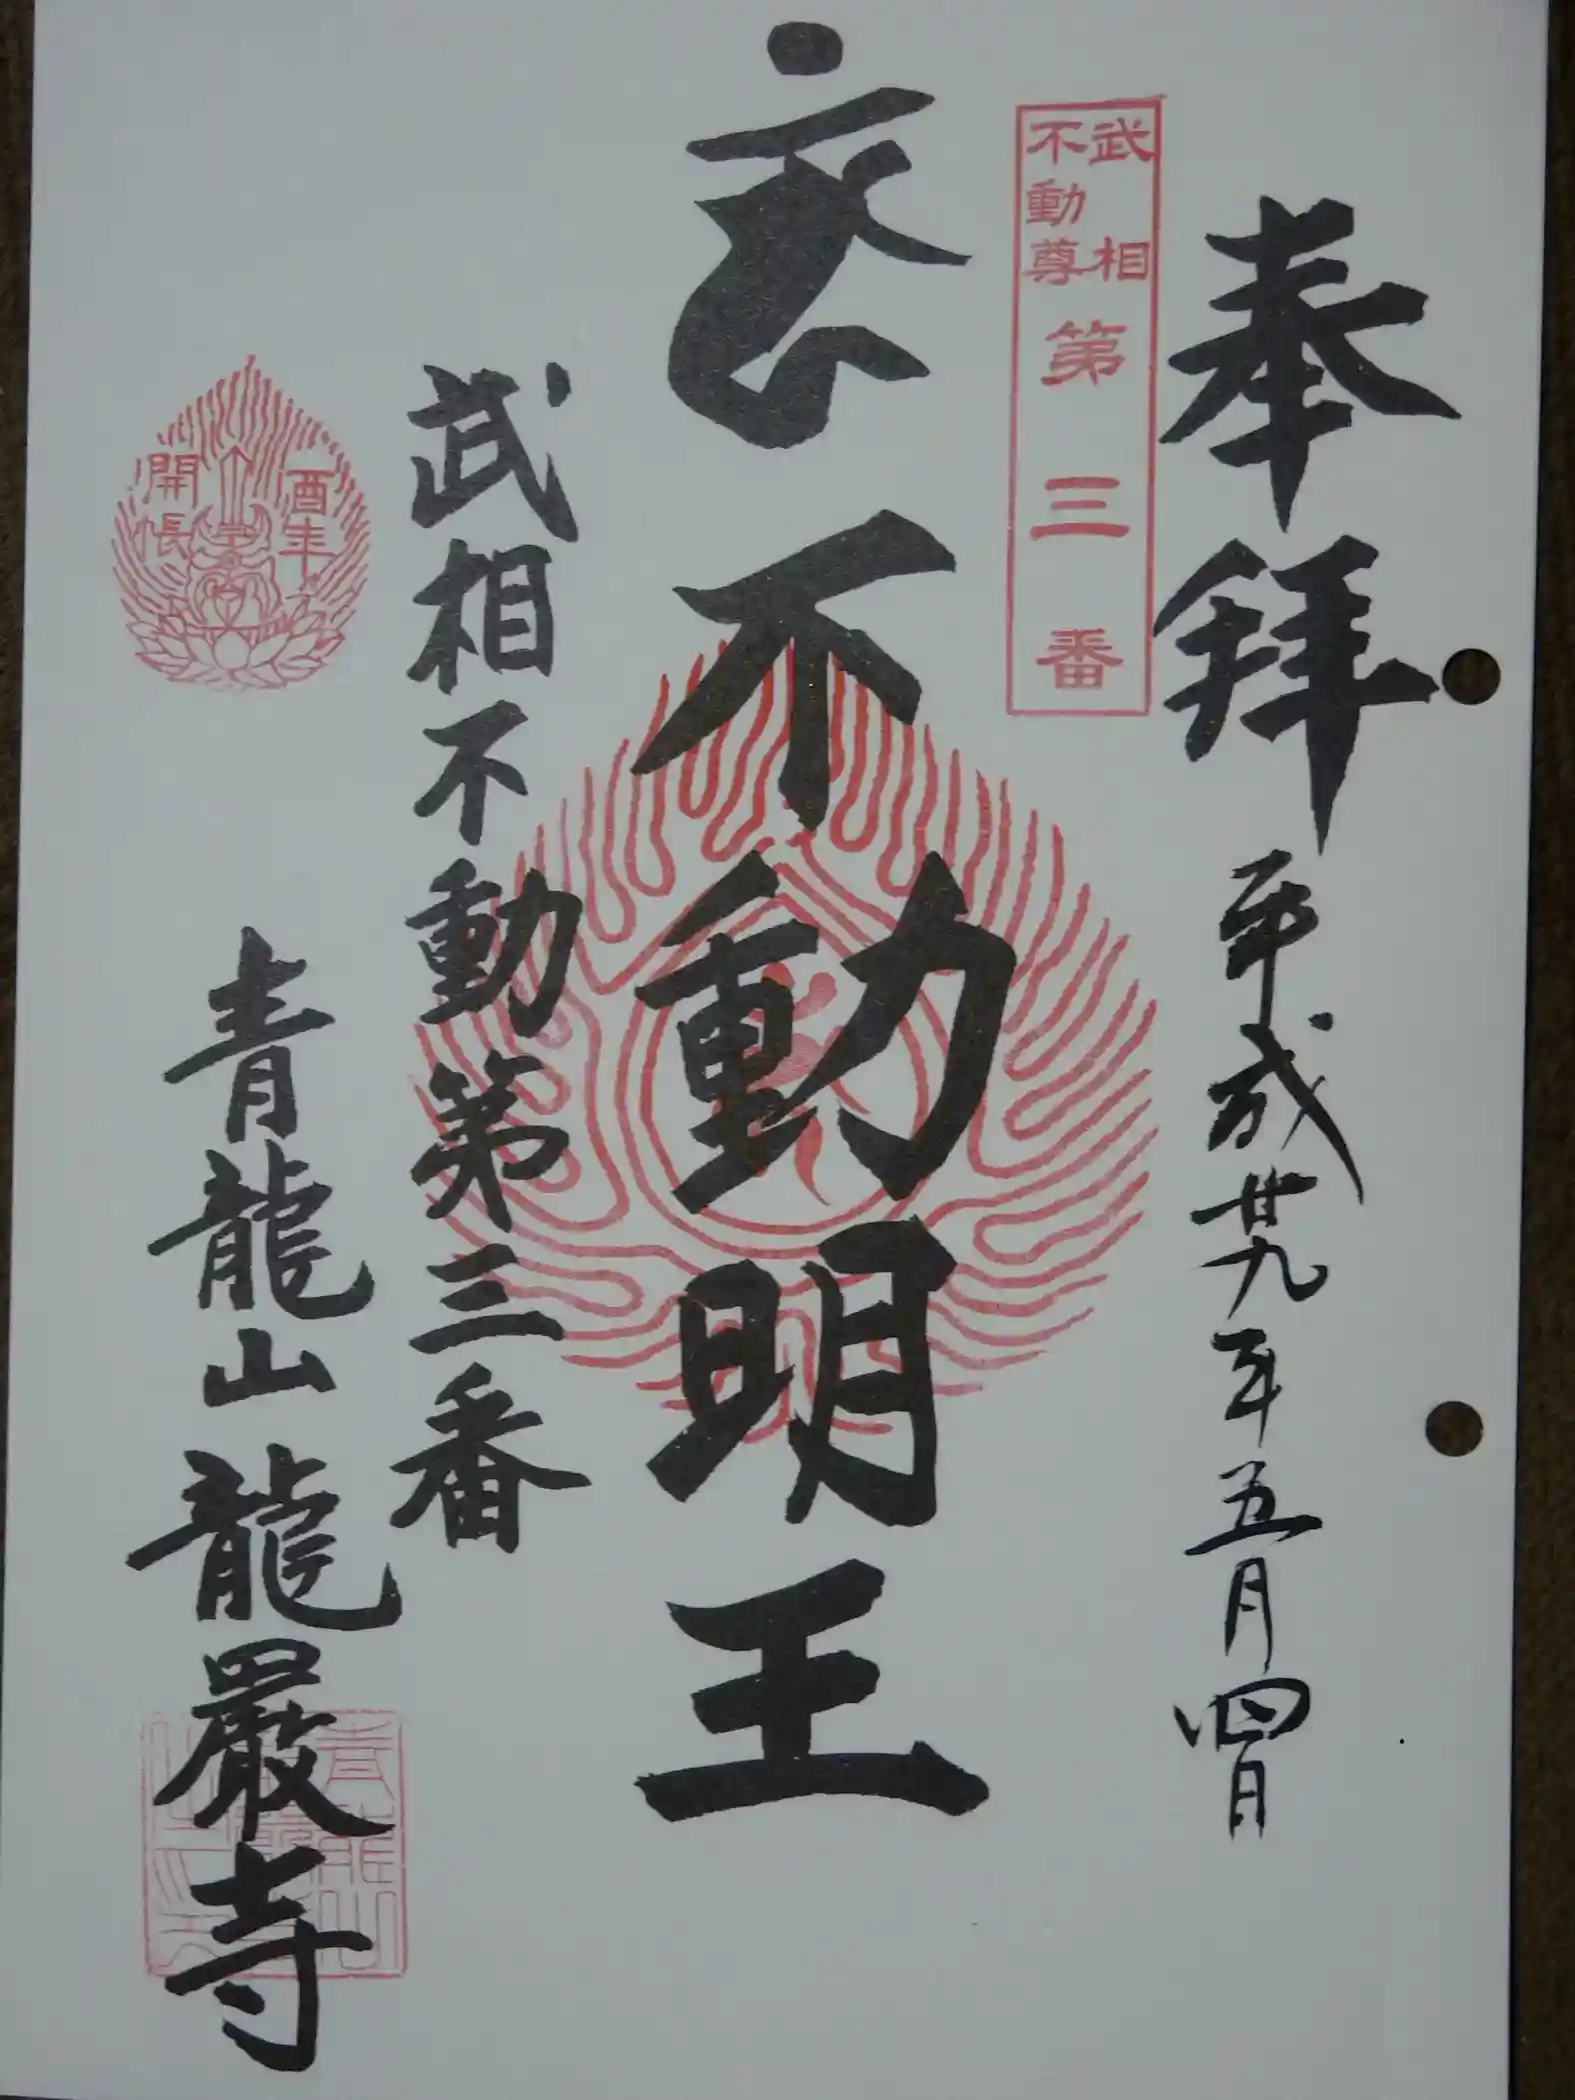 奉拜 平成廿九年五月四日
武相
不動尊
第三番
不動明王
武相不動第三番
青龍山 龍嚴寺
酉年
開帳